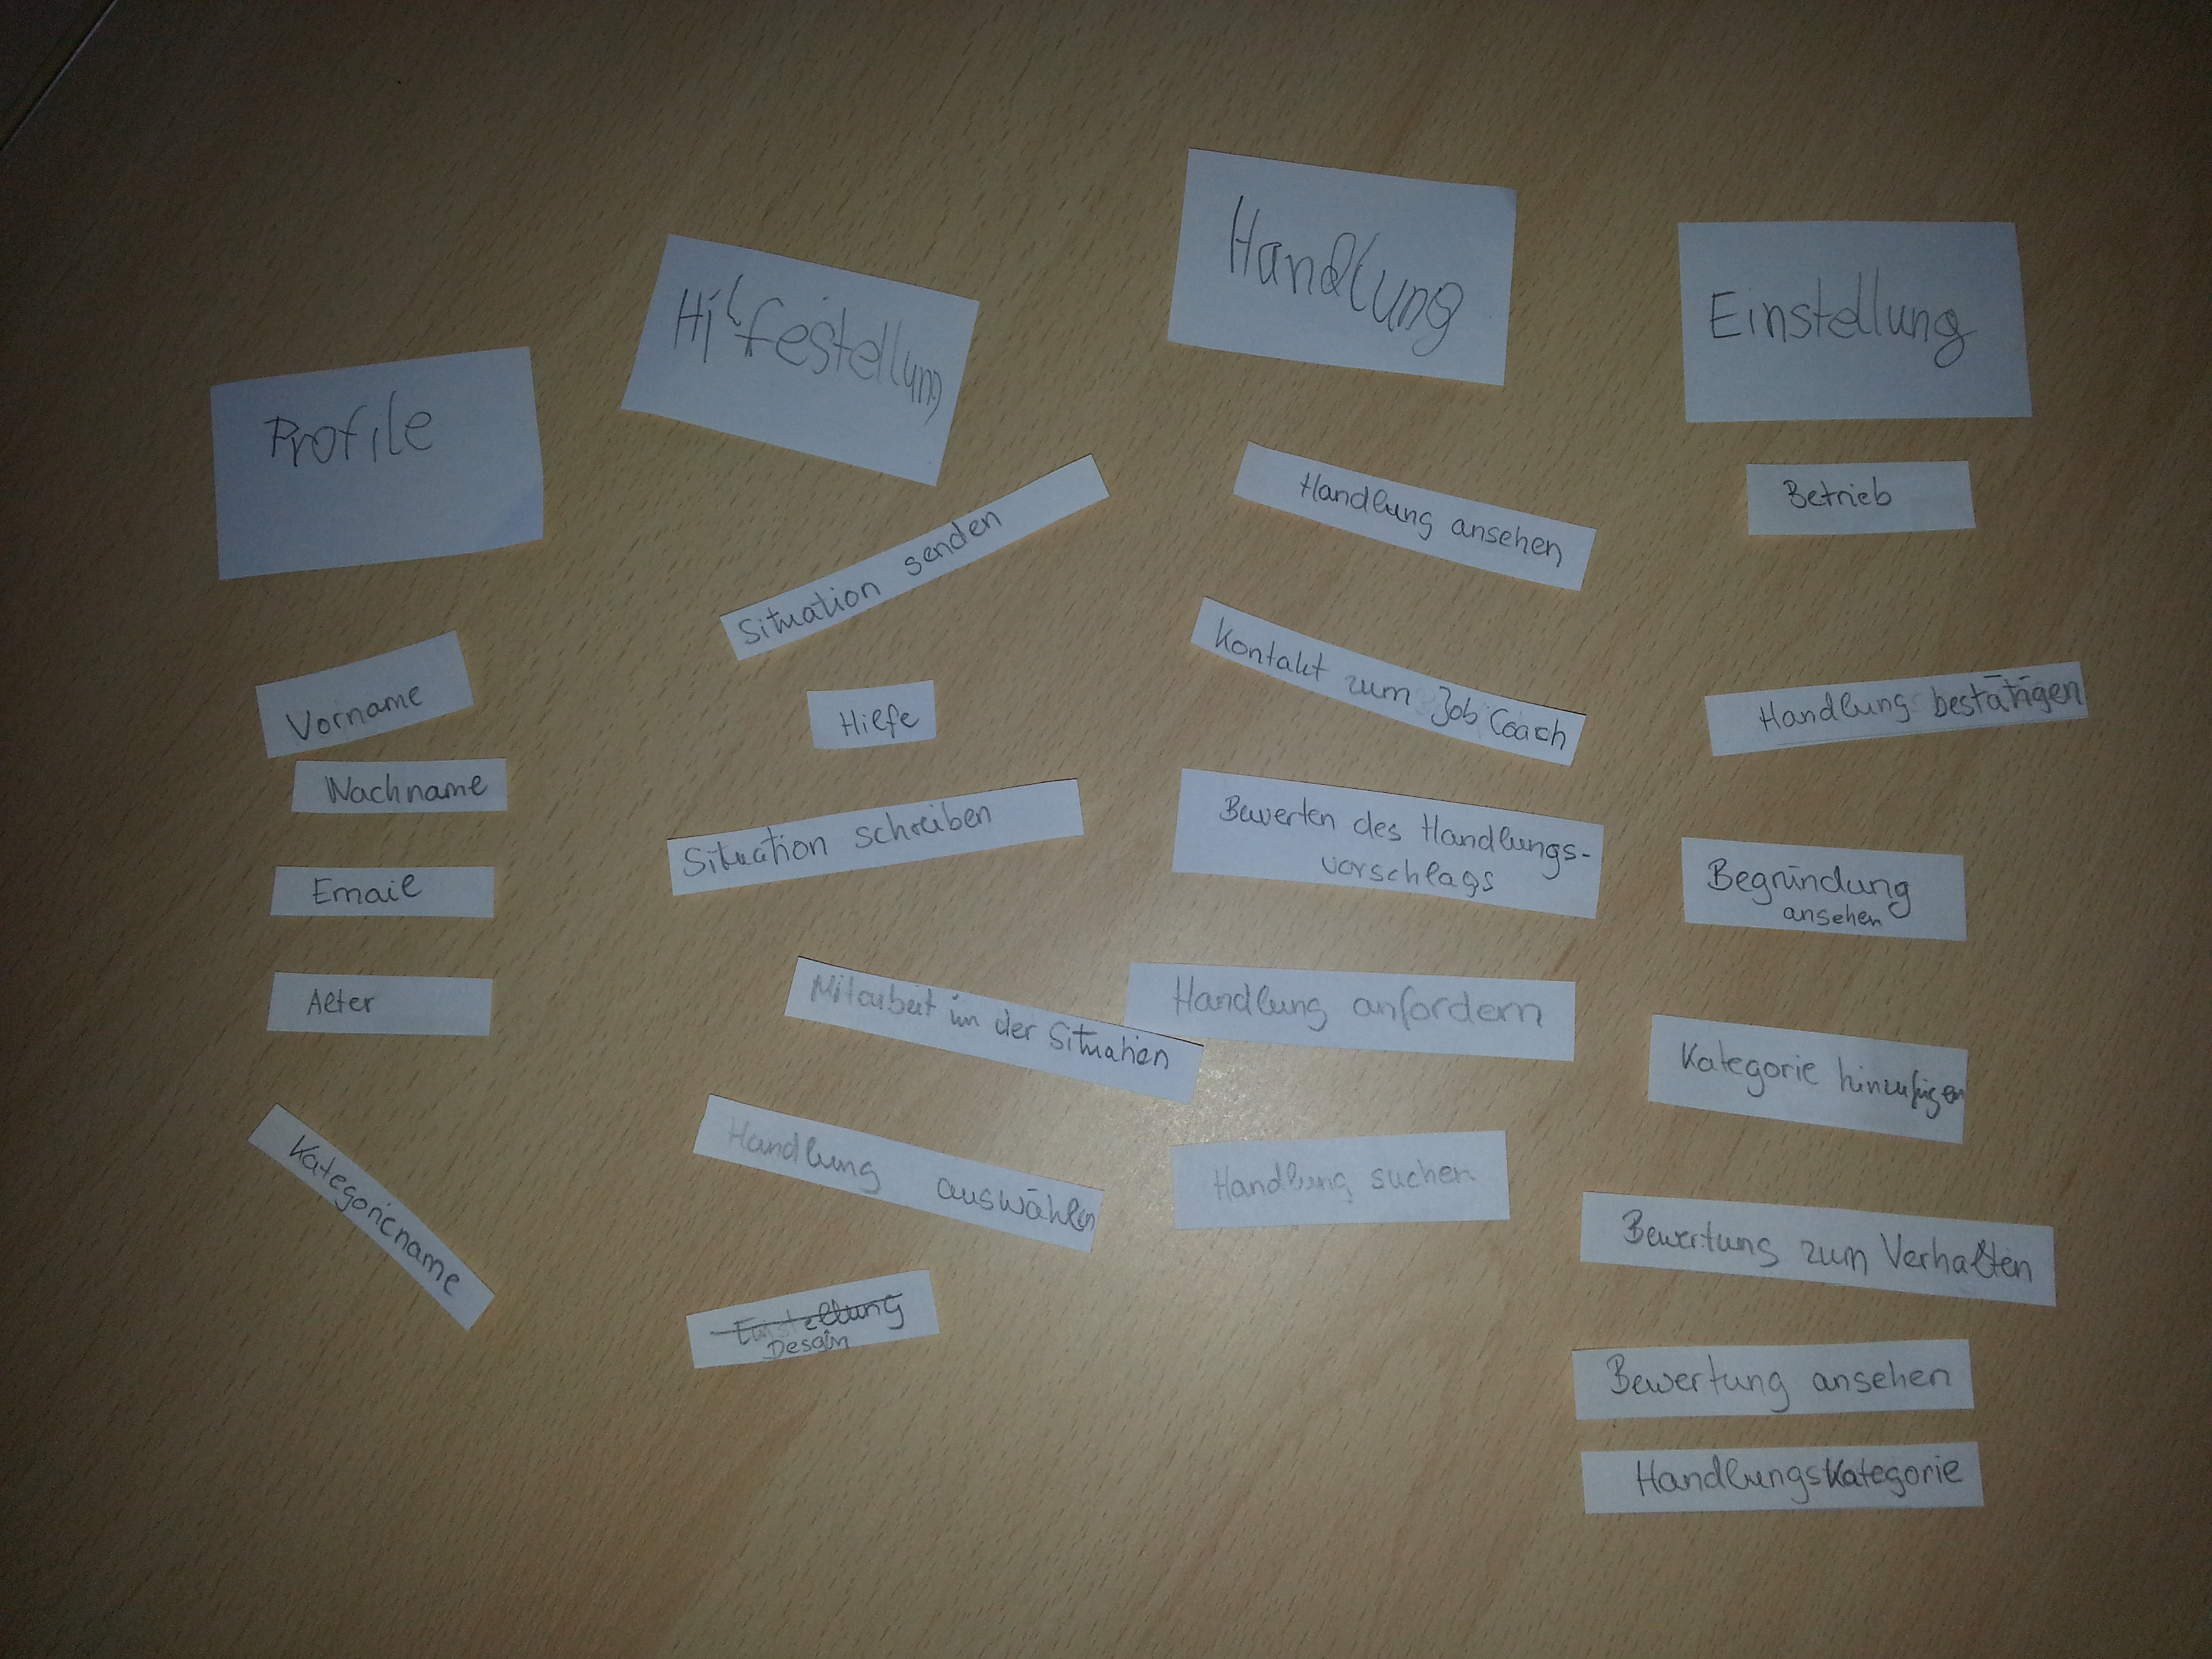 Profile
Vorname
Nachname
Email
Alter
Kategoriename
Hilfestellung
Situation senden
Hilfe
Situation schreiben
Mitarbeit in der Situation
Handlung auswählen
Einstellung
Desgin
Handlung
Handlung ansehen
Kontakt zum Job Coach
Bewerten des Handlungs-
vorschlags
Handlung anfordern
Handlung suchen
Einstellung
Betrieb
Handlung bestätigen
Begründung
ansehen
Kategorie hinzufügen
Bewertung zum Verhalten
Bewertung ansehen
Handlungskategorie